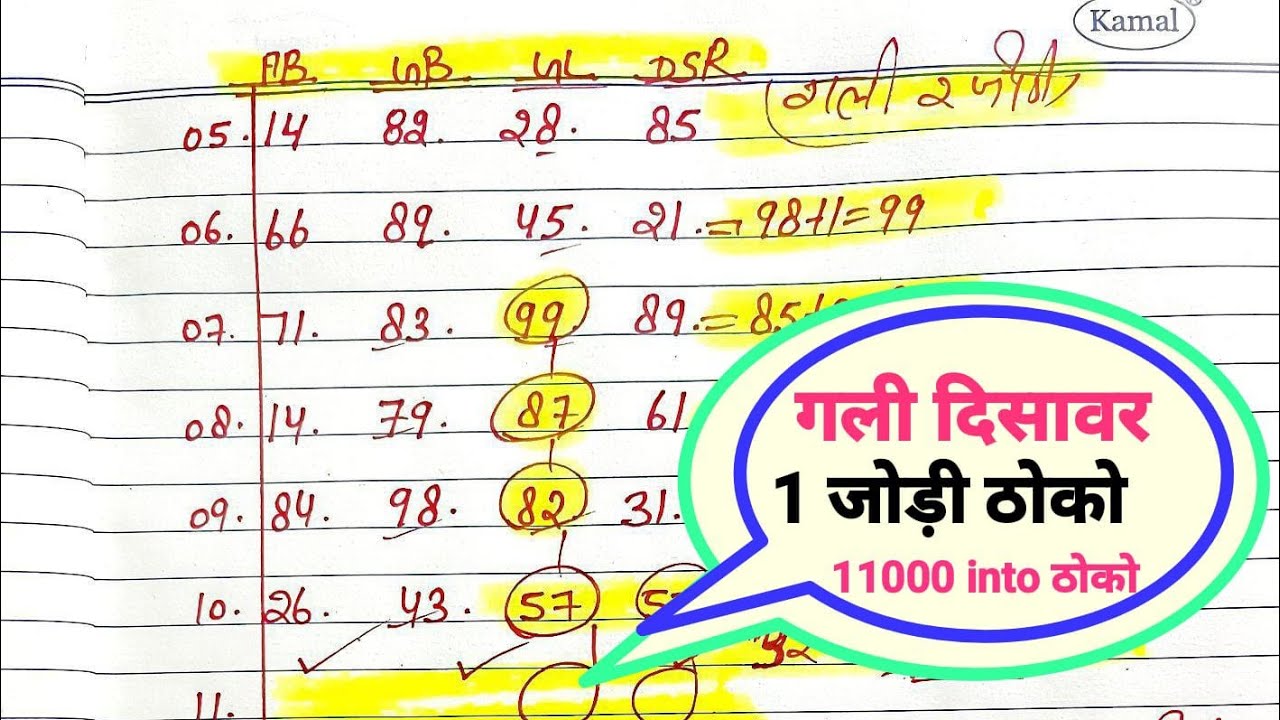 Kamal
FB GB GL DSR
गली २ जोडी
05. 14 82. 28. 85
06. 66 89. 45. 21. = 98+1=99
07. 71. 83. 99. 89. = 85+
08. 14. 79. 87 61
09. 84. 98. 82 31.
10. 26. 43. 57
11.
गली दिसावर
1 जोड़ी ठोको
11000 into ठोको